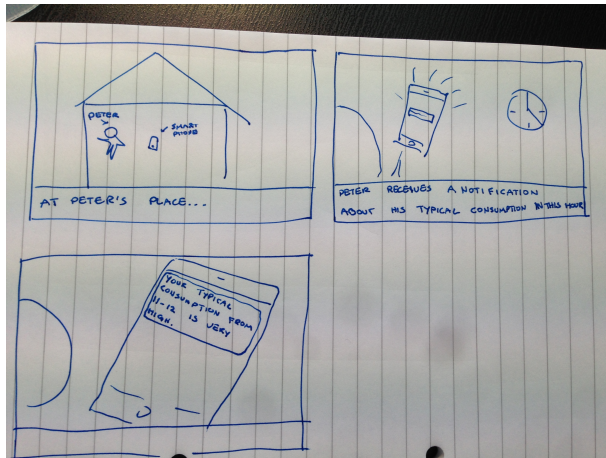 PETER
SMART
PHONE
AT PETER'S PLACE...
PETER RECEIVES A NOTIFICATION
ABOUT HIS TYPICAL CONSUMPTION IN THIS HOUR
YOUR TYPICAL
CONSUMPTION FROM
11-12 IS VERY
HIGH.